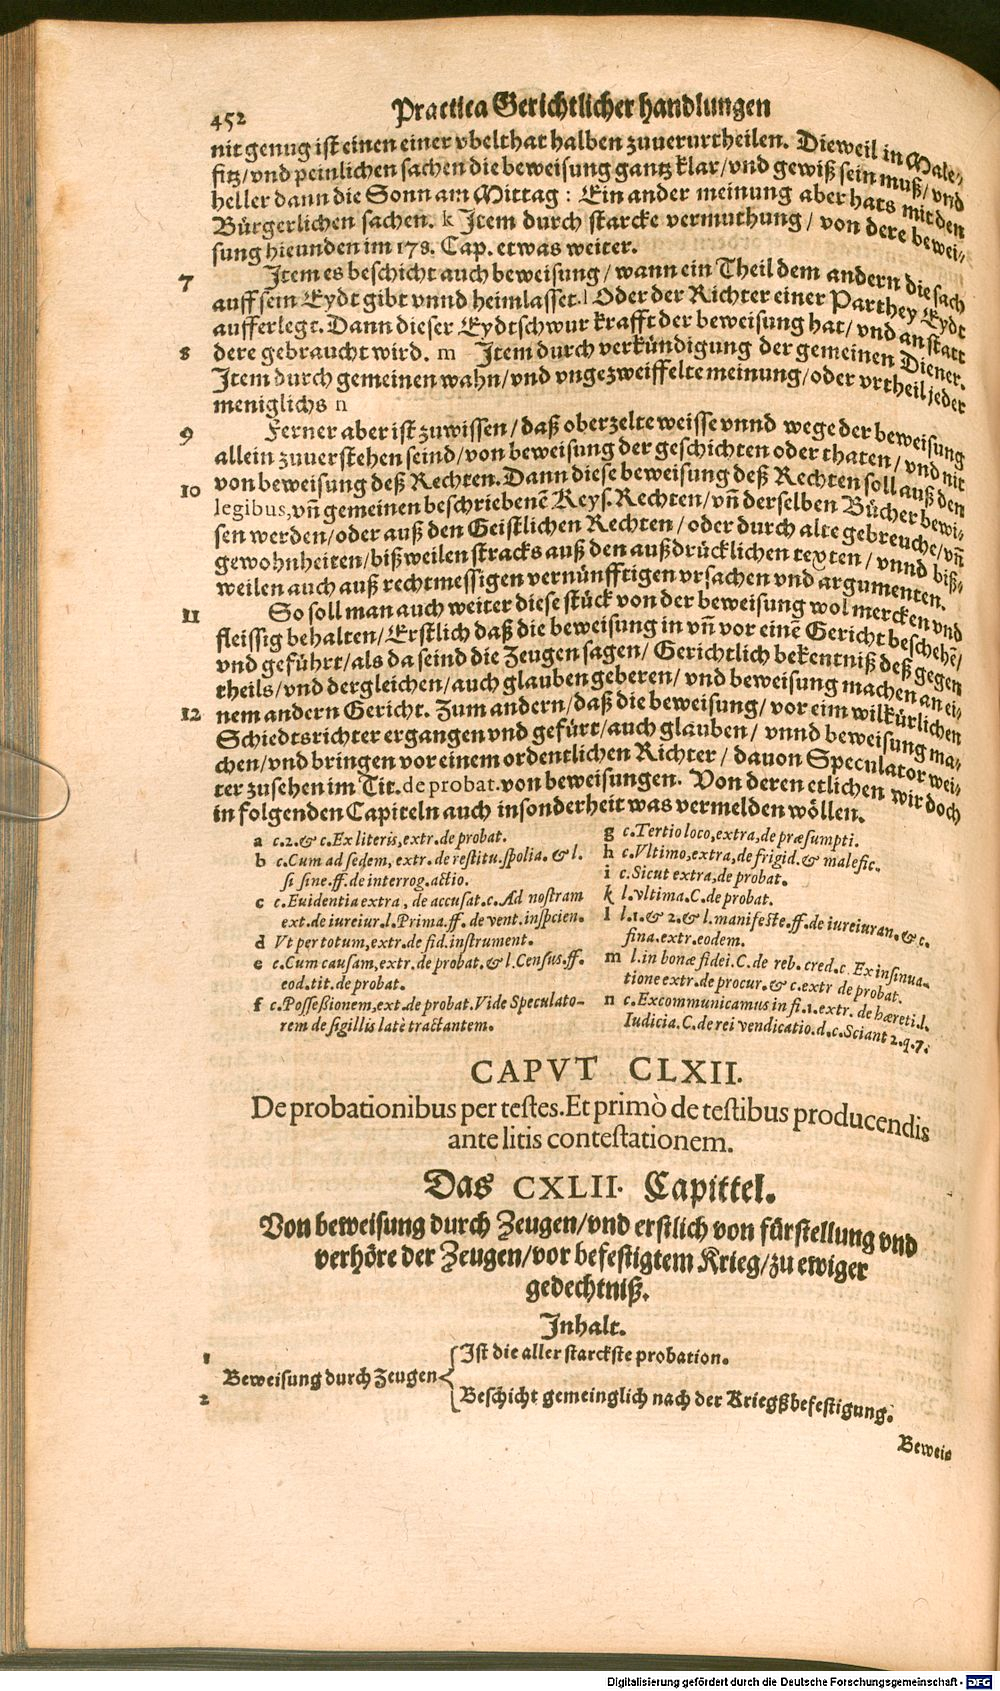 452 Practica Gerichtlicher handlungen
nit genug ist einen einer vbelthat halben zuuerurtheilen. Dieweil in Male-
fitz/vnd peinlichen sachen die beweisung gantz klar/vnd gewiß sein muß/vnd
heller dann die Sonn am Mittag: Ein ander meinung aber hats mit den
Bürgerlichen sachen. k Item durch starcke vermuthung/von dere bewei-
sung hieunden im 178. Cap. etwas weiter.
7 Item es beschicht auch beweisung/wann ein Theil dem andern die sach
auff sein Eydt gibt vnnd heimlasset. l Oder der Richter einer Parthey Eydt
aufferlegt. Dann dieser Eydtschwur krafft der beweisung hat/vnd an statt
8 dere gebraucht wird. m Item durch verkündigung der gemeinen Diener.
Item durch gemeinen wahn/vnd vngezweiffelte meinung/oder vrtheil jeder
meniglichs n
9 Ferner aber ist zuwissen/daß oberzelte weisse vnnd wege der beweisung
allein zuuerstehen seind/von beweisung der geschichten oder thaten/vnd nit
von beweisung deß Rechten. Dann diese beweisung deß Rechten soll auß den
10 legibus, vñ gemeinen beschriebenẽ Keys. Rechten/vñ derselben Bücher bewi-
sen werden/oder auß den Geistlichen Rechten/oder durch alte gebreuche/vñ
gewohnheiten/bißweilen stracks auß den außdrücklichen texten/vnnd biß-
weilen auch auß rechtmessigen vernünfftigen vrsachen vnd argumenten.
11 So soll man auch weiter diese stück von der beweisung wol mercken vnd
fleissig behalten/Erstlich daß die beweisung in vñ vor einẽ Gericht beschehẽ/
vnd geführt/als da seind die Zeugen sagen/Gerichtlich bekentniß deß gegen
theils/vnd dergleichen/auch glauben geberen/vnd beweisung machen an ei-
12 nem andern Gericht. Zum andern/daß die beweisung/vor eim wilkürlichen
Schiedtsrichter ergangen vnd gefürt/auch glauben/vnnd beweisung ma-
chen/vnd bringen vor einem ordentlichen Richter/dauon Speculator wei-
ter zusehen im Tit. de probat. von beweisungen. Von deren etlichen wir doch
in folgenden Capiteln auch insonderheit was vermelden wöllen.
a c.2. & c. Ex literis, extr. de probat.
b c. Cum ad sedem, extr. de restitu. spolia. & l.
si sine. ff. de interrog. actio.
c c. Euidentia extra, de accusat. c. Ad nostram
ext. de iureiur. l. Prima. ff. de vent. inspcien.
d Vt per totum, extr. de fid. instrument.
e c. Cum causam, extr. de probat. & l. Census. ff.
eod. tit. de probat.
f c. Possessionem, ext. de probat. Vide Speculato-
rem de sigillis latè tractantem.
g c. Tertio loco, extra, de præsumpti.
h c. Vltimo, extra, de frigid. & malefic.
i c. Sicut extra, de probat.
k l. vltima. C. de probat.
l l.1. & 2. & l. manifeste. ff. de iureiuran. & c.
fina. extr. eodem.
m l. in bonæ fidei. C. de reb. cred. c Ex insinua-
tione extr. de procur. & c. extr de probat.
n c. Excommunicamus in fi.1. extr. de hæreti. l.
Iudicia. C. de rei vendicatio. d. c. Sciant 2. q. 7.
CAPVT CLXII.
De probationibus per testes. Et primò de testibus producendis
ante litis contestationem.
Das CXLII. Capittel.
Von beweisung durch Zeugen/vnd erstlich von fürstellung vnd
verhöre der Zeugen/vor befestigtem Krieg/zu ewiger
gedechtniß.
Inhalt.
1 Ist die aller starckste probation.
Beweisung durch Zeugen
2 Beschicht gemeinglich nach der Kriegßbefestigung.
Beweis
Digitalisierung gefördert durch die Deutsche Forschungsgemeinschaft - DFG